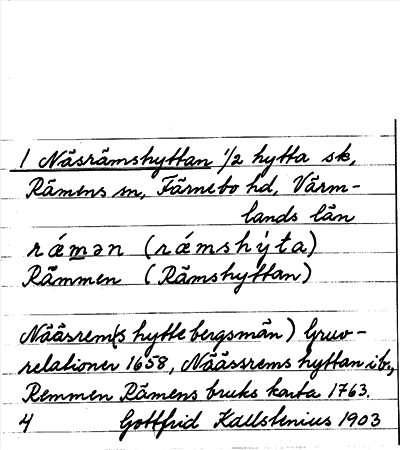 1 Näsrämshyttan 1/2 hytta sk,
Rämens sn, Färnebo hd, Värm-
lands län
rǽmən (rǽmshýta)
Rämmen (Rämshyttan)
Nääsrem(s hytte bergsmän) Gruv-
relationer 1658, Näässrems hyttan ib.,
Remmen Rämens bruks karta 1763.
4 Gottfrid Kallstenius 1903